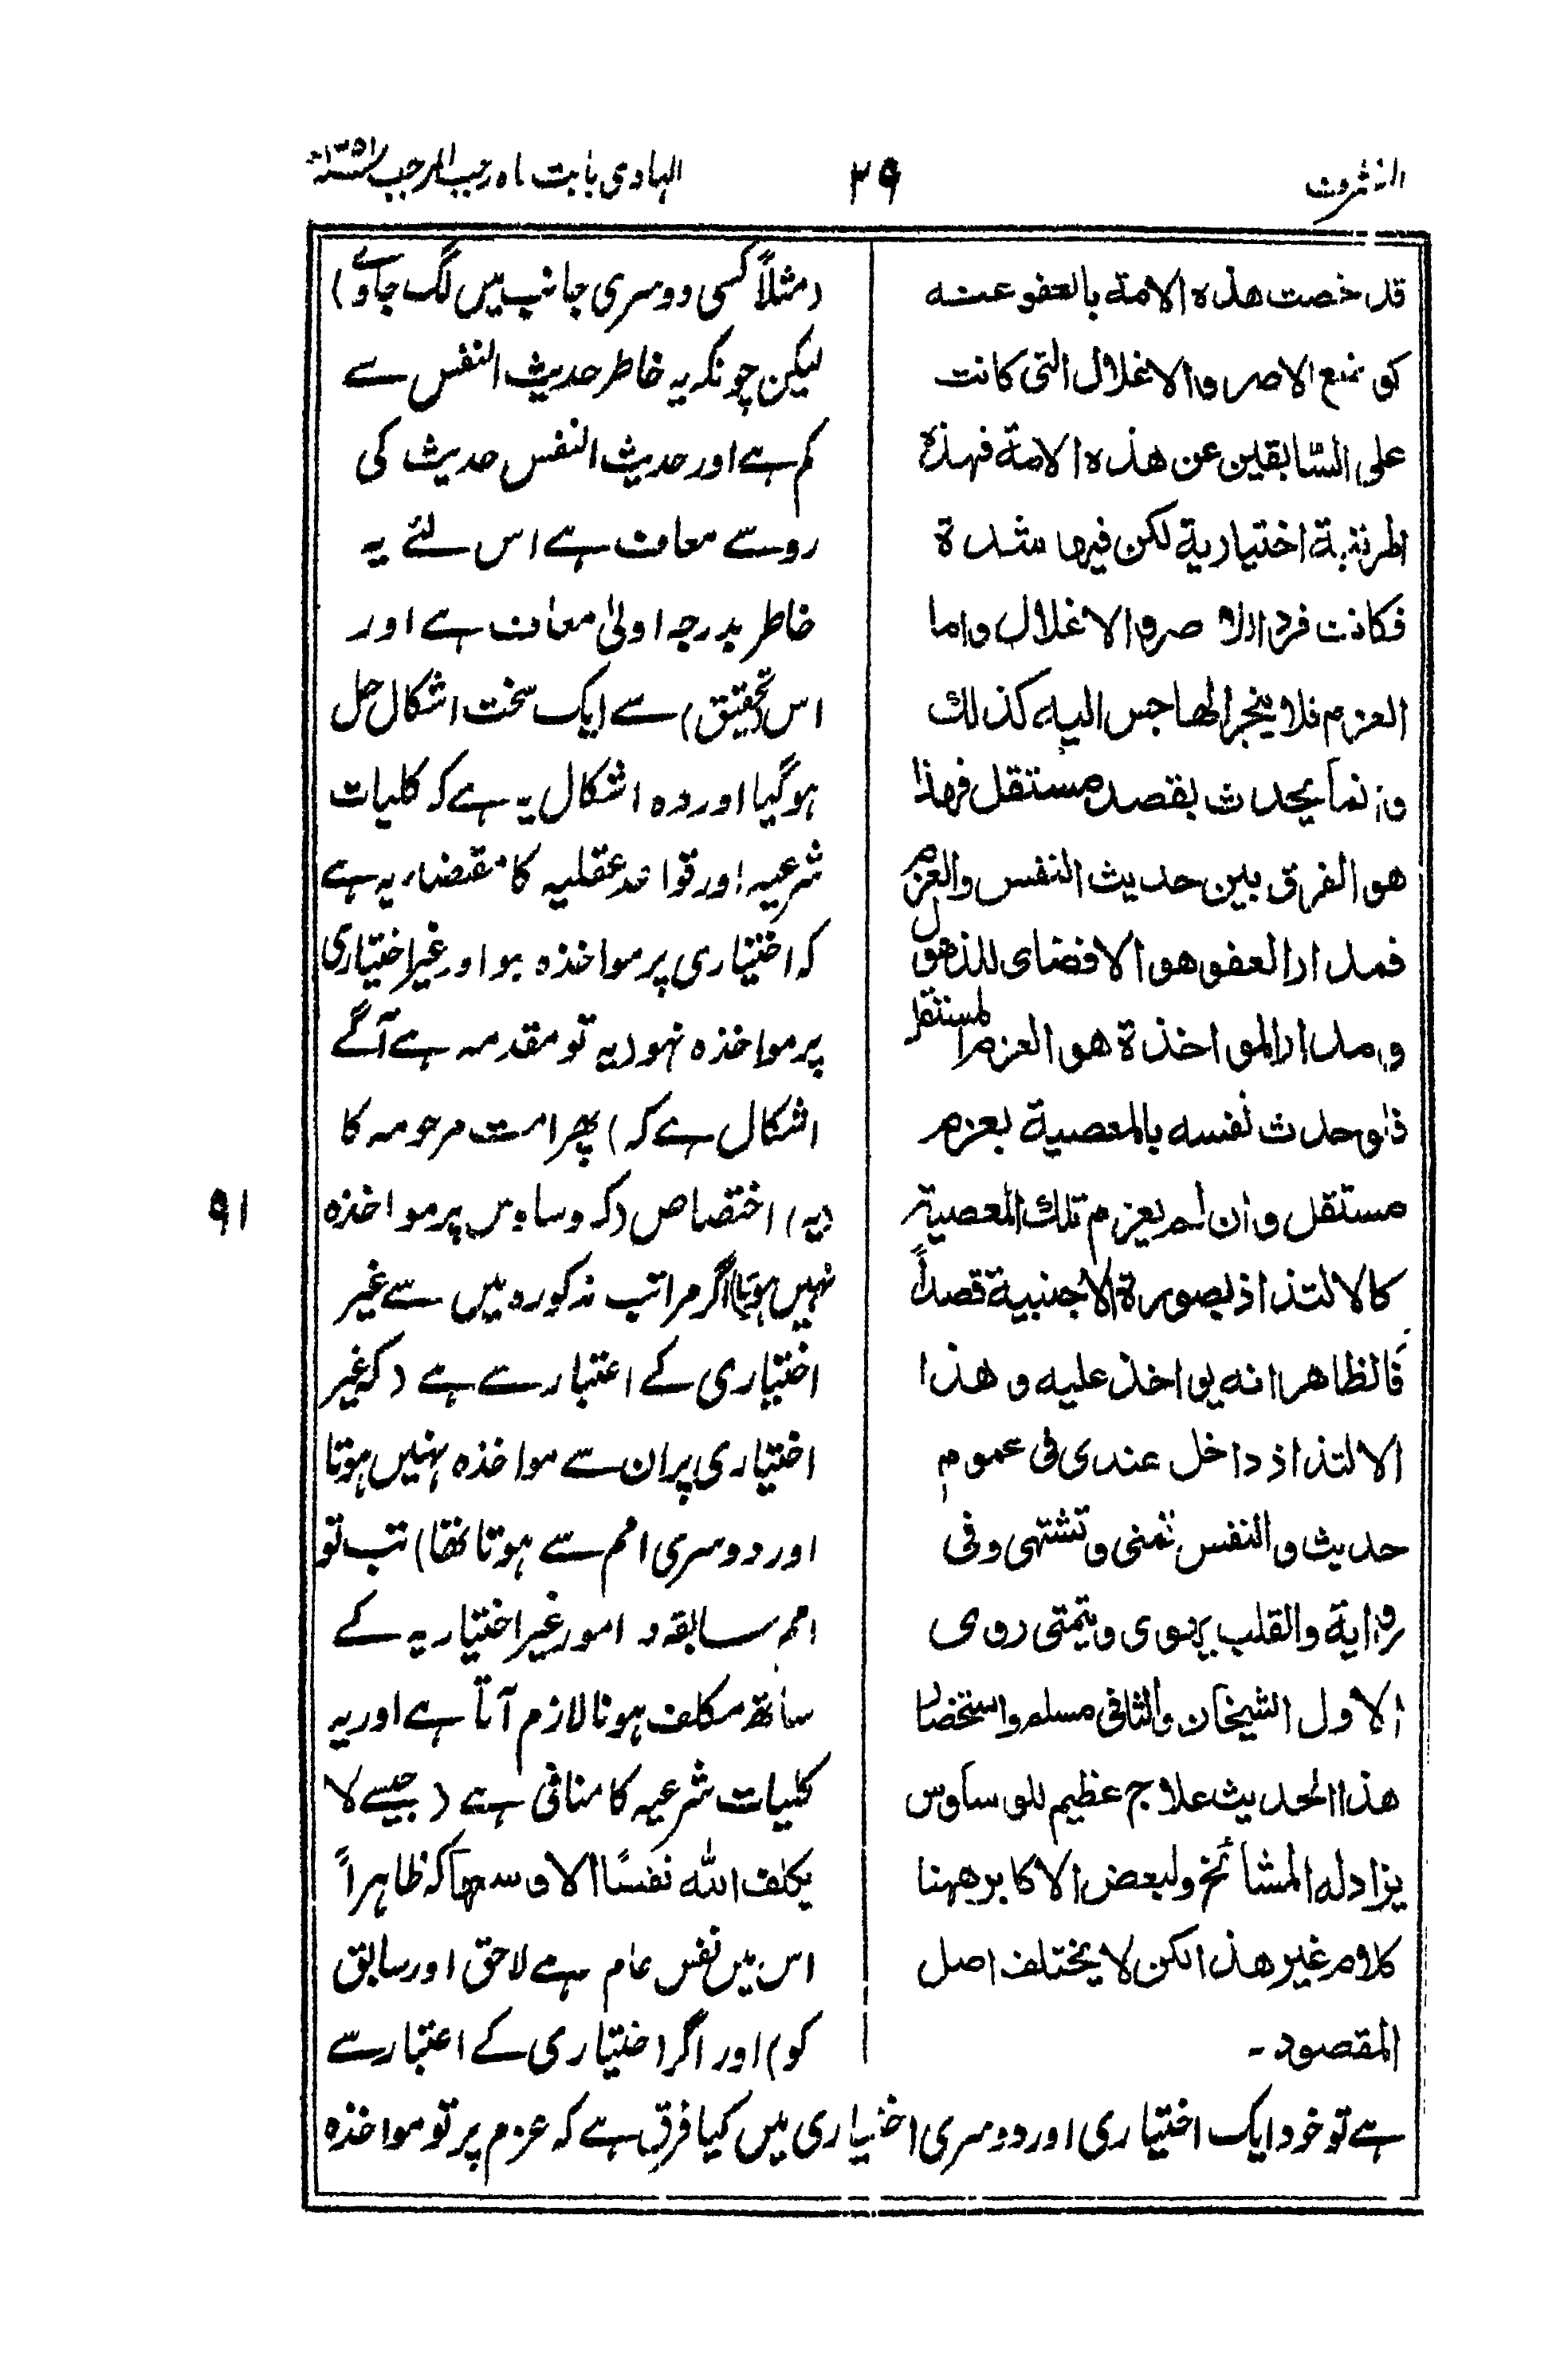 التشرف
۲۹
الہادی بابت ماہ رجب المرجب ۱۳۵۱ھ
قد خصت هذه الامة بالعفو عنه
كوضع الاصر والاغلال التى كانت
على السّابقين عن هذه الامة فهذه
المرتبة اختيارية لكن فيها شدة
فكانت فرد الاصر والاغلال واما
العزم فلا ينجر الهاجس اليه كذلك
وانما يحدث بقصد مستقل فهذا
هو الفرق بين حديث النفس والعزم
فمدار العفو هو الافضاى للذهول
ومدار المواخذة هو العزم المستقل
فلو حدث نفسه بالمعصية بعزم
مستقل وان لم يعزم تلك المعصية
كالالتذاذ بصورة الاجنبية قصداً
فالظاهر انه يواخذ عليه وهذا
الالتذاذ داخل عندى فى عموم
حديث والنفس تمنى وتشتهى وفى
رواية والقلب يهوى ويتمنى روى
الاول الشيخان والثانى مسلم واستحضار
هذا الحديث علاج عظيم للوساوس
يزاد له المشائخ ولبعض الاكابر ههنا
كلام غير هذا لكن لا يختلف اصل
المقصود ۔
(مثلاً کسی دوسری جانب میں لگ جاوے)
لیکن چونکہ یہ خاطر حدیث النفس سے
کم ہے اور حدیث النفس حدیث کی
رو سے معاف ہے اس لئے یہ
خاطر بدرجہ اولیٰ معاف ہے اور
اس (تحقیق) سے ایک سخت اشکال حل
ہوگیا اور وہ اشکال یہ ہے کہ کلیات
شرعیہ اور قواعد عقلیہ کا مقتضا یہ ہے
کہ اختیاری پر مواخذہ ہو اور غیر اختیاری
پر مواخذہ نہو (یہ تو مقدمہ ہے آگے
اشکال ہے کہ) پھر امت مرحومہ کا
(یہ) اختصاص (کہ وساوس پر مواخذہ
نہیں ہوتا) اگر مراتب مذکورہ میں سے غیر
اختیاری کے اعتبار سے ہے (کہ غیر
اختیاری پر ان سے مواخذہ نہیں ہوتا
اور دوسری امم سے ہوتا تھا) تب تو
امم سابقہ کا امور غیر اختیاریہ کے
ساتھ مکلف ہونا لازم آتا ہے اور یہ
کلیات شرعیہ کا منافی ہے (جیسے لا
یکلف اللہ نفسًا الا وسعہا کہ ظاہراً
اس میں نفس عام ہے لاحق اور سابق
کو) اور اگر اختیاری کے اعتبار سے
ہے تو خود ایک اختیاری اور دوسری اختیاری میں کیا فرق ہے کہ عزم پر تو مواخذہ
۹۱